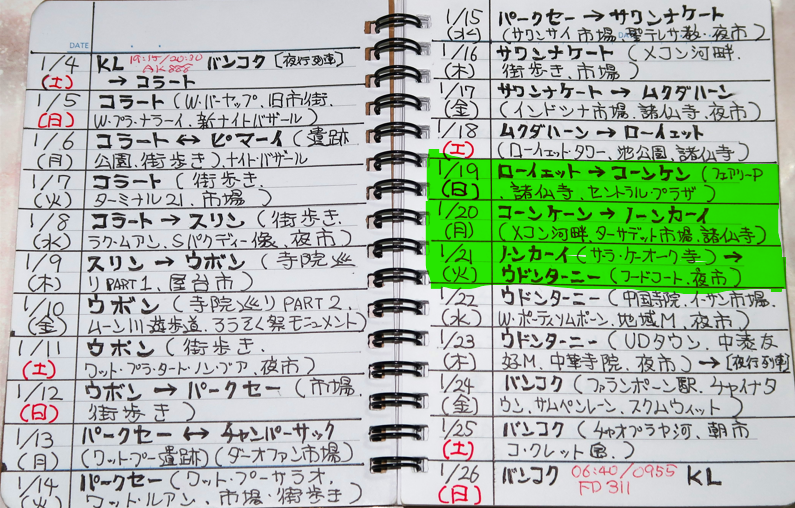 DATE
1/4 KL 19:15/20:30 バンコク [夜行列車]
(土) AK888 → コラート
1/5 コラート (W.パーヤップ、旧市街、
(日) W.プラ・ナラーイ、新ナイトバザール)
1/6 コラート ↔ ピマーイ (遺跡
(月) 公園、街歩き)、ナイトバザール
1/7 コラート (街歩き、
(火) ターミナル21、市場)
1/8 コラート → スリン (街歩き、
(水) ラク・ムアン、Sパクディー像、夜市)
1/9 スリン → ウボン (寺院巡
(木) りPART1、屋台市)
1/10 ウボン (寺院巡りPART2、
(金) ムーン川遊歩道、ろうそく祭モニュメント)
1/11 ウボン (街歩き、
(土) ワット・プラ・タート・ノン・ブア、夜市)
1/12 ウボン → パークセー (市場、
(日) 街歩き)
1/13 パークセー ↔ チャンパーサック
(月) (ワットプー遺跡)(ダーオファン市場)
1/14 パークセー (ワット・プーサラオ、
(火) ワット・ルアン、市場・街歩き)
1/15 パークセー → サワンナケート
(水) (サワンサイ市場、聖テレサ教、夜市)
1/16 サワンナケート (メコン河畔、
(木) 街歩き、市場)
1/17 サワンナケート → ムクダハーン
(金) (インドシナ市場、諸仏寺、夜市)
1/18 ムクダハーン → ローイェット
(土) (ローイェットタワー、池公園、諸仏寺)
1/19 ローイェット → コーンケン (フェアリーP
(日) 、諸仏寺、セントラル・プラザ)
1/20 コーンケーン → ノーンカーイ
(月) (メコン河畔、ターサデット市場、諸仏寺)
1/21 ノンカーイ (サラ・ケーオーク寺) →
(火) ウドンターニー (フードコート、夜市)
1/22 ウドンターニー (中国寺院、イーサン市場、
(水) W.ポーティソムポーン、地域M、夜市)
1/23 ウドンターニー (UDタウン、中泰友
(木) 好M、中華寺院、夜市) → [夜行列車]
1/24 バンコク (ファランポーン駅、チャイナタ
(金) ウン、サムペンレーン、スクムウィット)
1/25 バンコク (チャオプラヤ河、朝市
(土) コ・クレット島、)
1/26 バンコク 06:40/0955 KL
(日) FD311